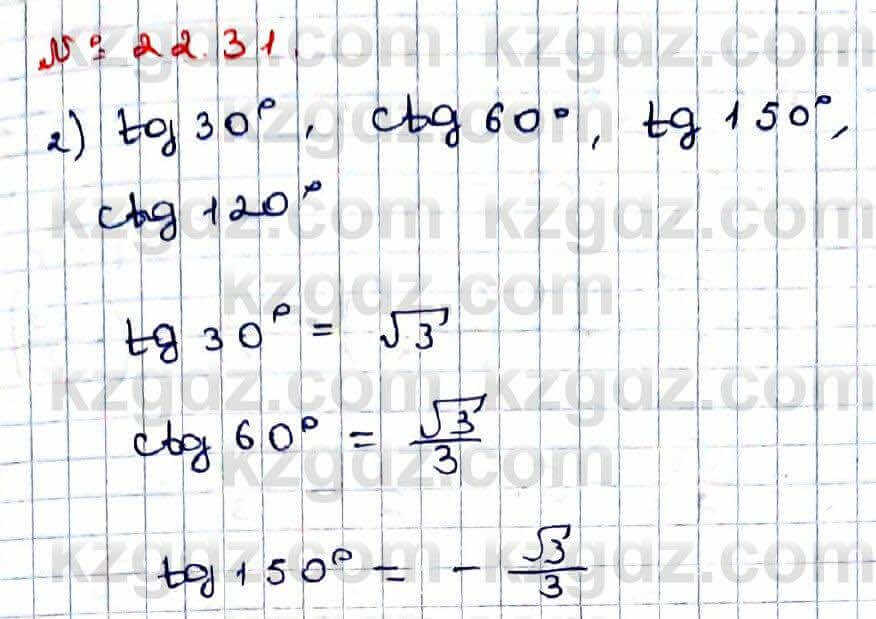 № 22.31.
2) tg 30°, ctg 60°, tg 150°,
ctg 120°
tg 30° = √3
ctg 60° = √3/3
tg 150° = - √3/3
kzgdz.com kzgdz.com
kzgdz.com
kzgdz.com kzgdz.com
kzgdz.com
kzgdz.com kzgdz.com
kzgdz.com
kzgdz.com kzgdz.com